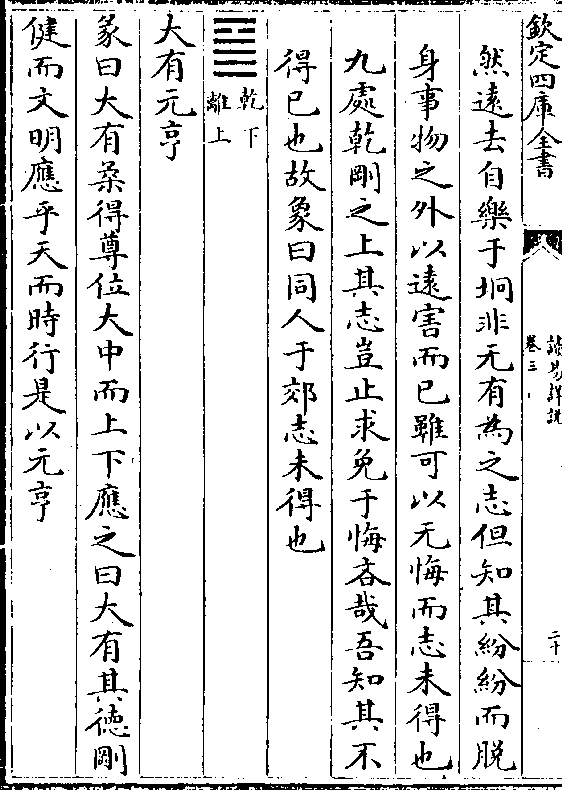 欽定四庫全書
讀易詳説
卷三
二十
然遠去自樂于坰非无有為之志但知其紛紛而脱
身事物之外以遠害而已雖可以无悔而志未得也
九處乾剛之上其志豈止求免于悔吝哉吾知其不
得已也故象曰同人于郊志未得也
乾下
離上
大有元亨
彖曰大有柔得尊位大中而上下應之曰大有其德剛
健而文明應乎天而時行是以元亨